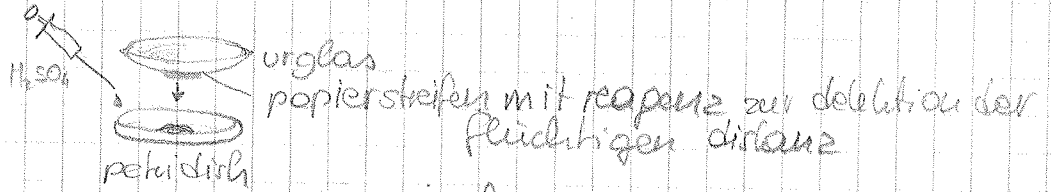 H₂SO₄
urglas
papierstreifen mit reagenz zur detektion der
flüchtigen
petridish